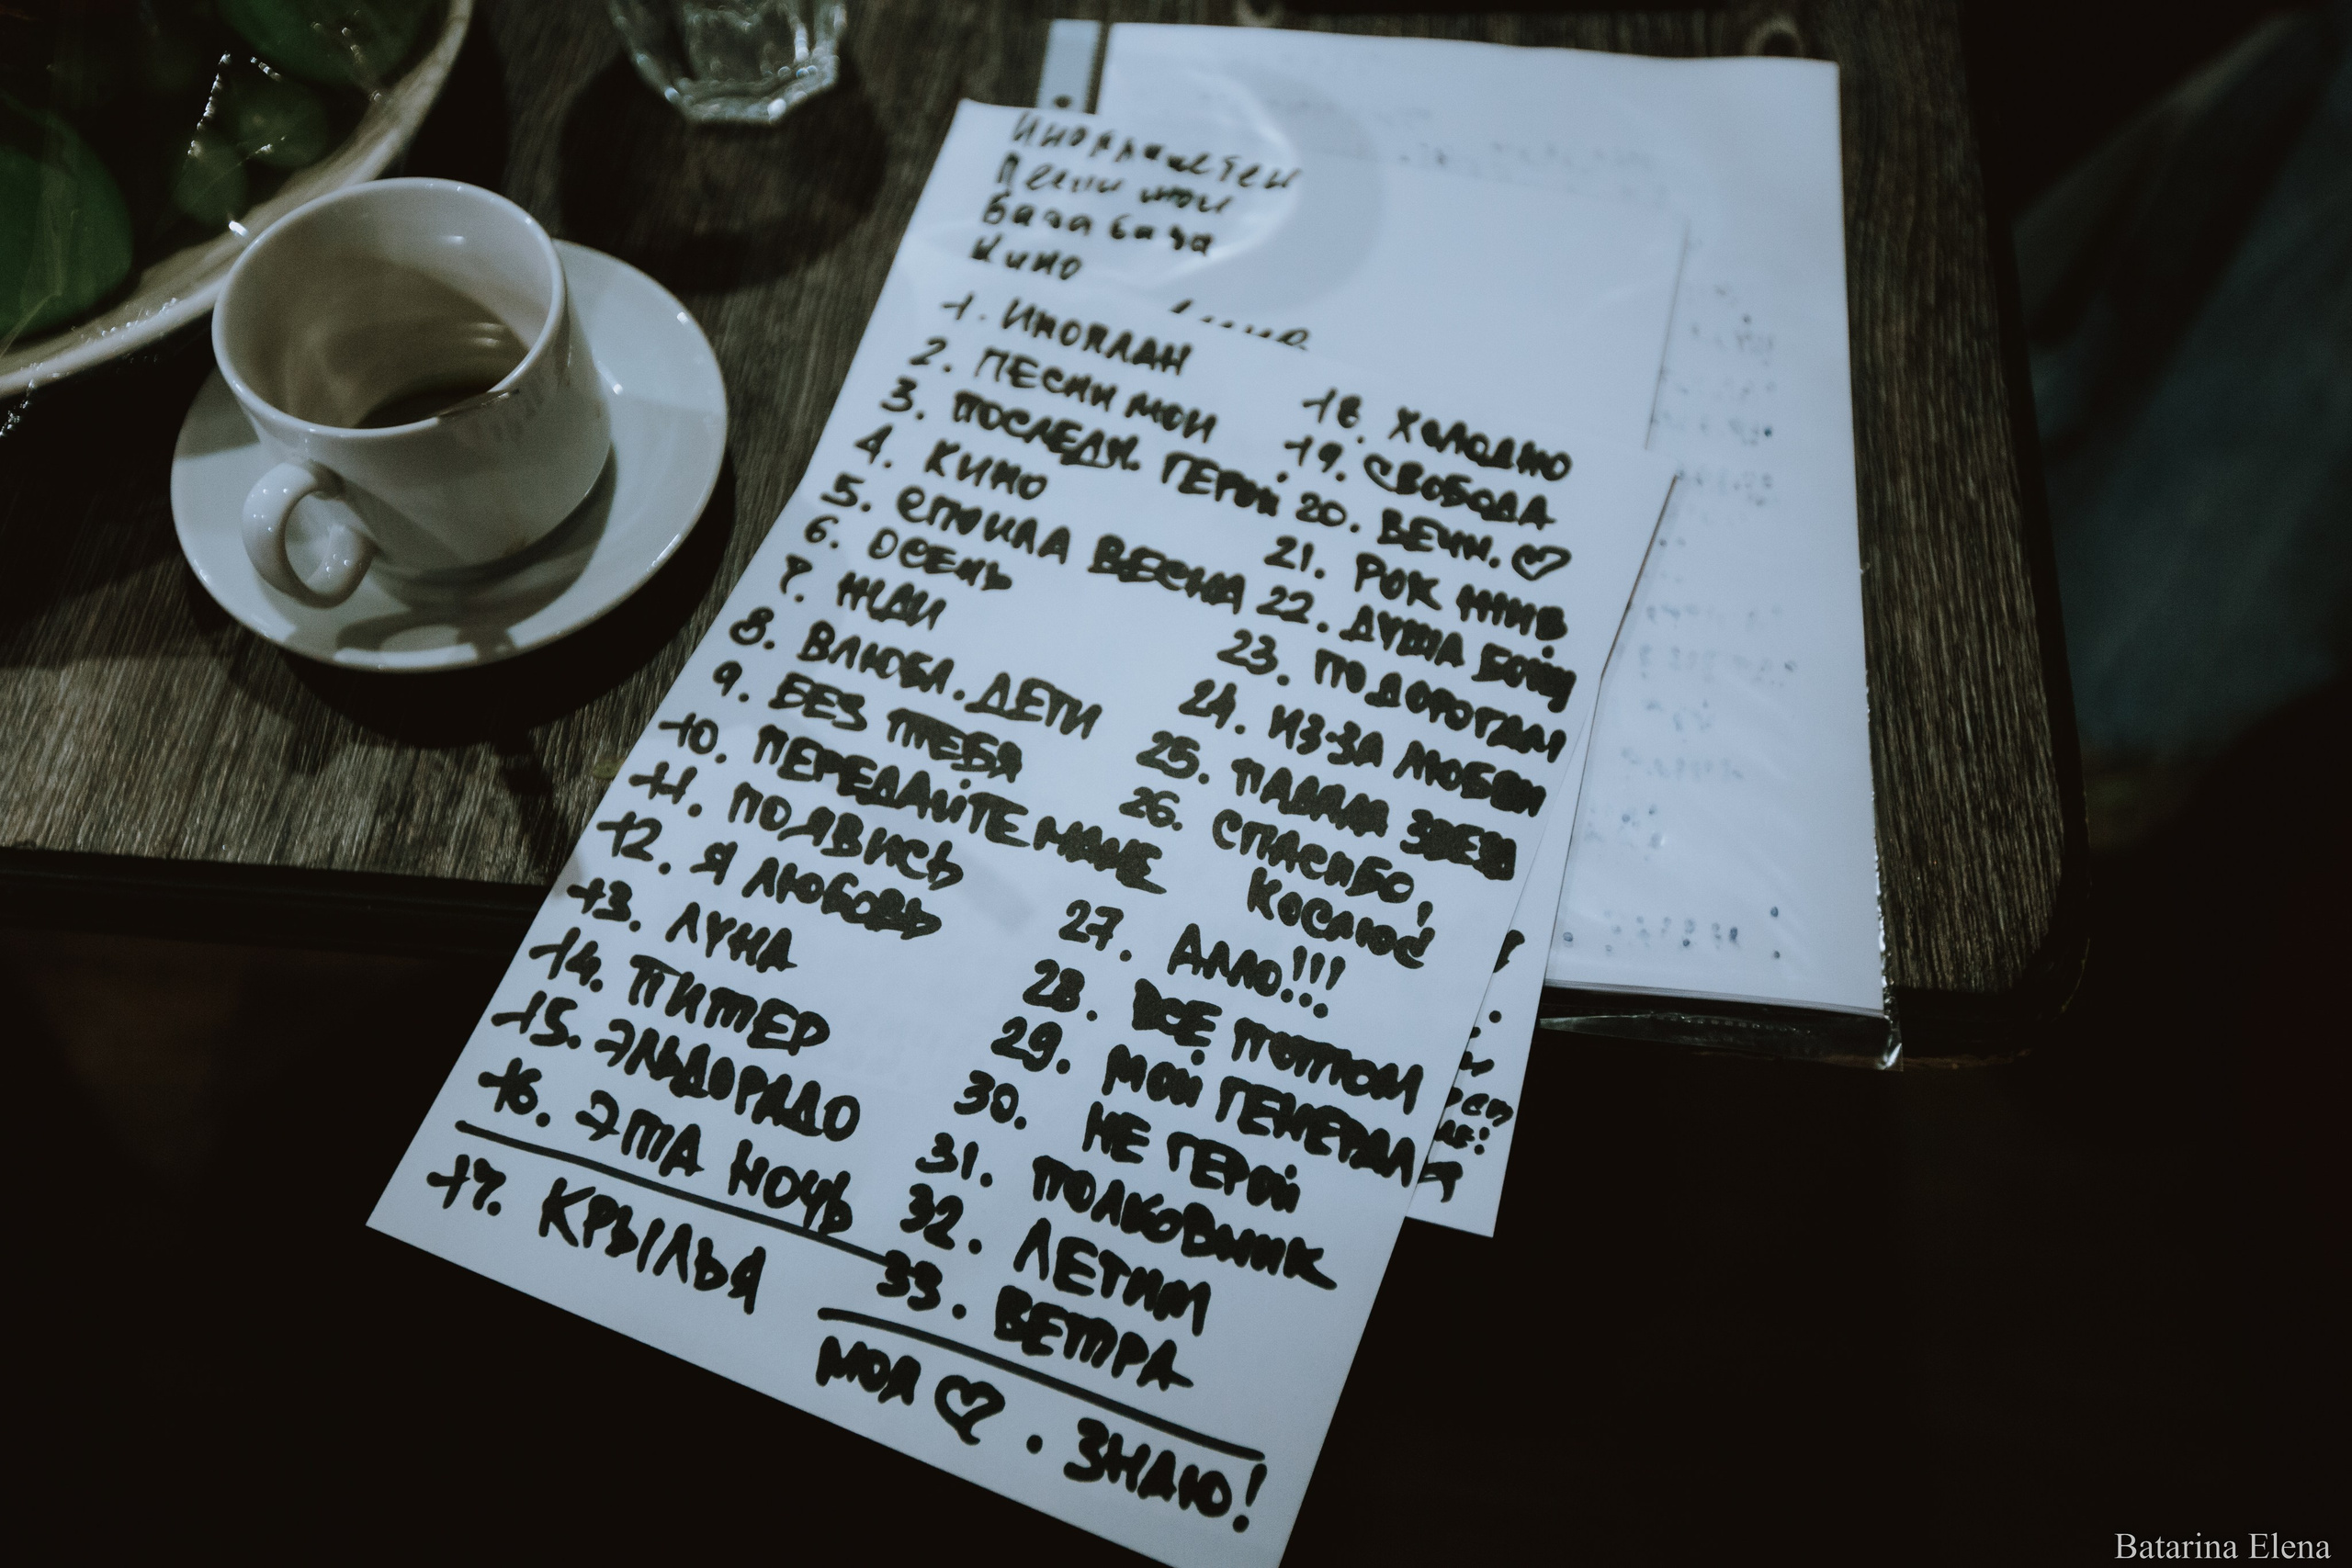 Инопланетен
Песни мои
База база
Кино
1. ИНОПЛАН
2. ПЕСНИ МОИ
3. ПОСЛЕДН. ГЕРОЙ
4. КИНО
5. СПЮИЛА ВЕСНА
6. ОСЕНЬ
7. ЖДИ
8. ВЛЮБЛ. ДЕТИ
9. БЕЗ ТЕБЯ
10. ПЕРЕДАЙТЕ МАМЕ
11. ПОЯВИСЬ
12. Я ЛЮБОВЬ
13. ЛУНА
14. ПИТЕР
15. ЭЛЬДОРАДО
16. ЭТА НОЧЬ
17. КРЫЛЬЯ
18. ХОЛОДНО
19. СВОБОДА
20. ВЕЧН. ♡
21. РОК ЖИВ
22. ДУША БОЮ
23. ПО ДОРОГАМ
24. ИЗ-ЗА ЛЮБВИ
25. ПАДАЛА ЗВЕЗД
26. СПАСИБО,
КОСМОС!
27. АЛЛО!!!
28. ВСЁ ПОТОМ
29. МОЙ ГЕНЕРАЛ
30. НЕ ГЕРОЙ
31. ПОЛКОВНИК
32. ЛЕТИМ
33. ВЕТРА
МОЯ ♡. ЗНАЮ!
Batarina Elena